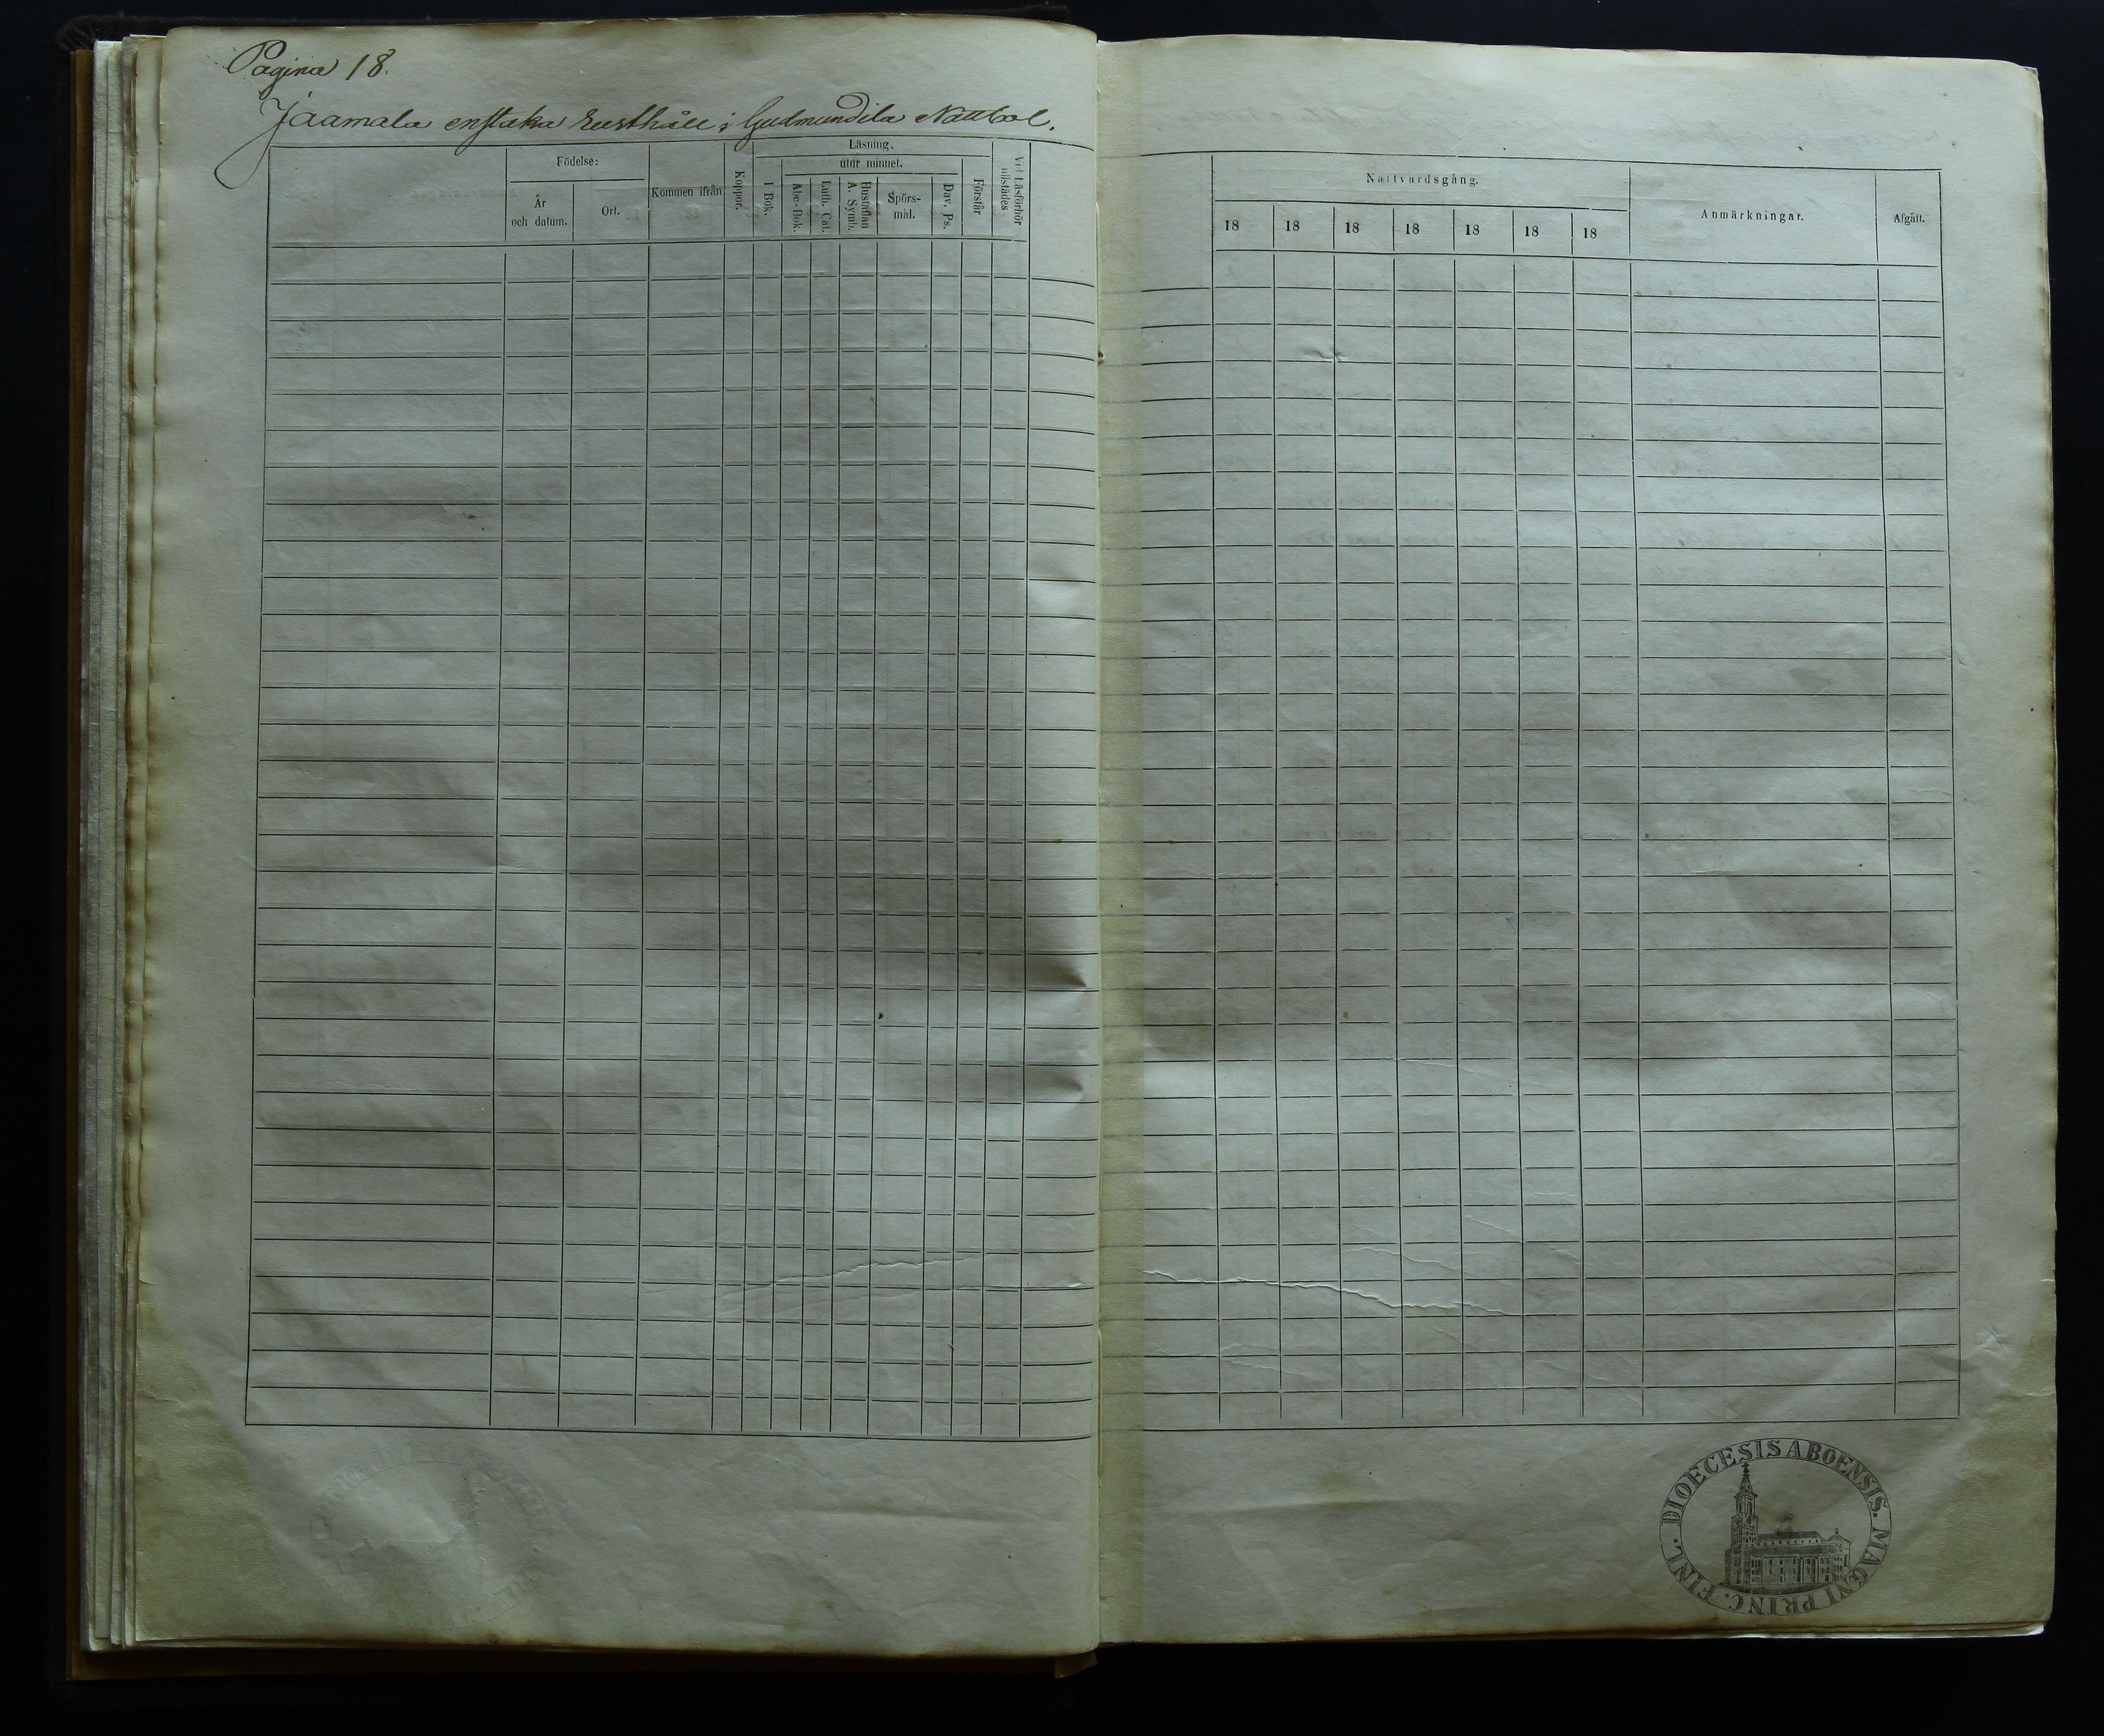 Pagina 18.
Jaamala enstaka Rusthåll i Gudmundila Nattbol.
Födelse:
År och datum.
Ort.
Kommen ifrån
Koppor.
Läsning.
I Bok.
utur minnet.
Abc-Bok.
Luth. Cat.
Hustaflan A. Symb.
Spörs-mål.
Dav. Ps.
Förstår
Vid Läsförhör tillstädes
Nattvardsgång.
18 18 18 18 18 18 18
Anmärkningar.
Afgått.
DIOECESIS ABOENSIS. MAGNI PRINC. FINL.